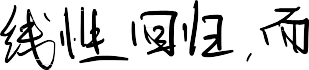 线性回归,而